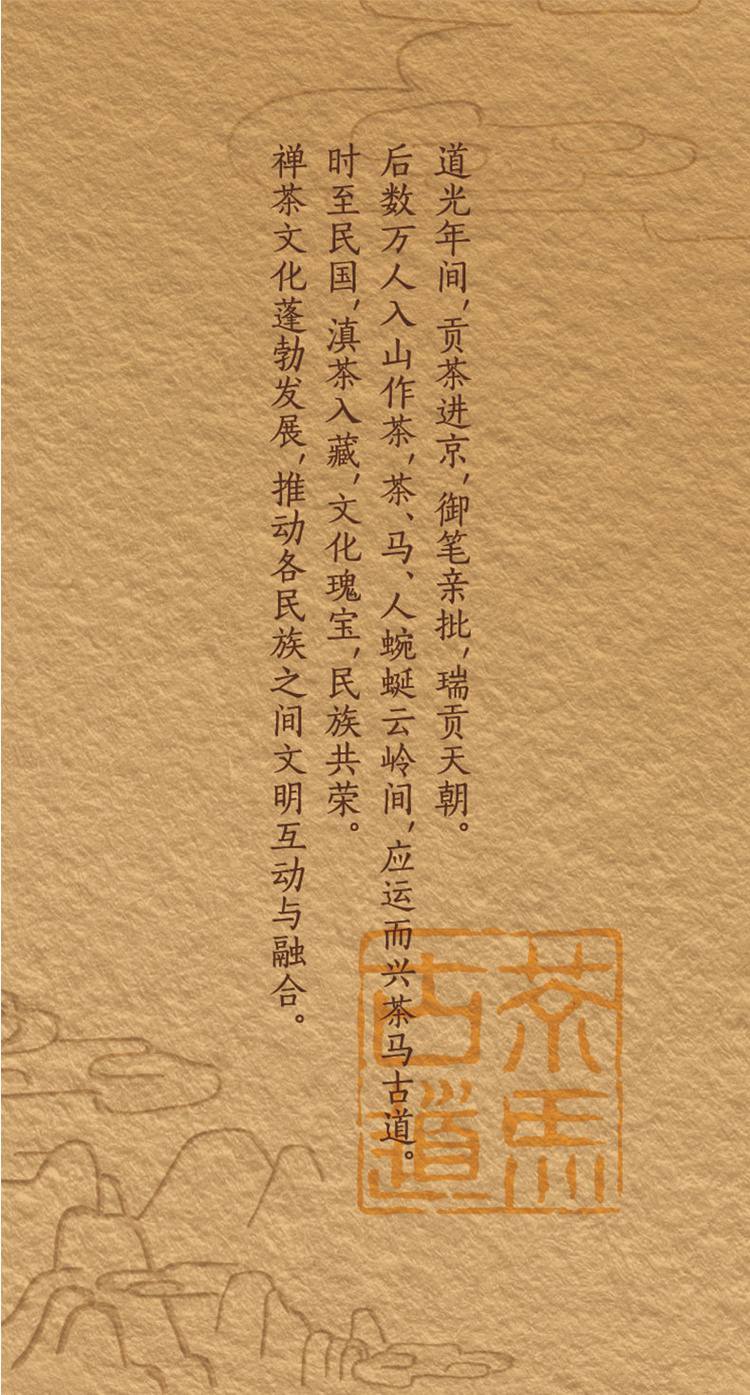 道光年间，贡茶进京，御笔亲批，瑞贡天朝。
后数万人入山作茶，茶、马、人蜿蜒云岭间，应运而兴茶马古道。
时至民国，滇茶入藏，文化瑰宝，民族共荣。
禅茶文化蓬勃发展，推动各民族之间文明互动与融合。
茶马
古道